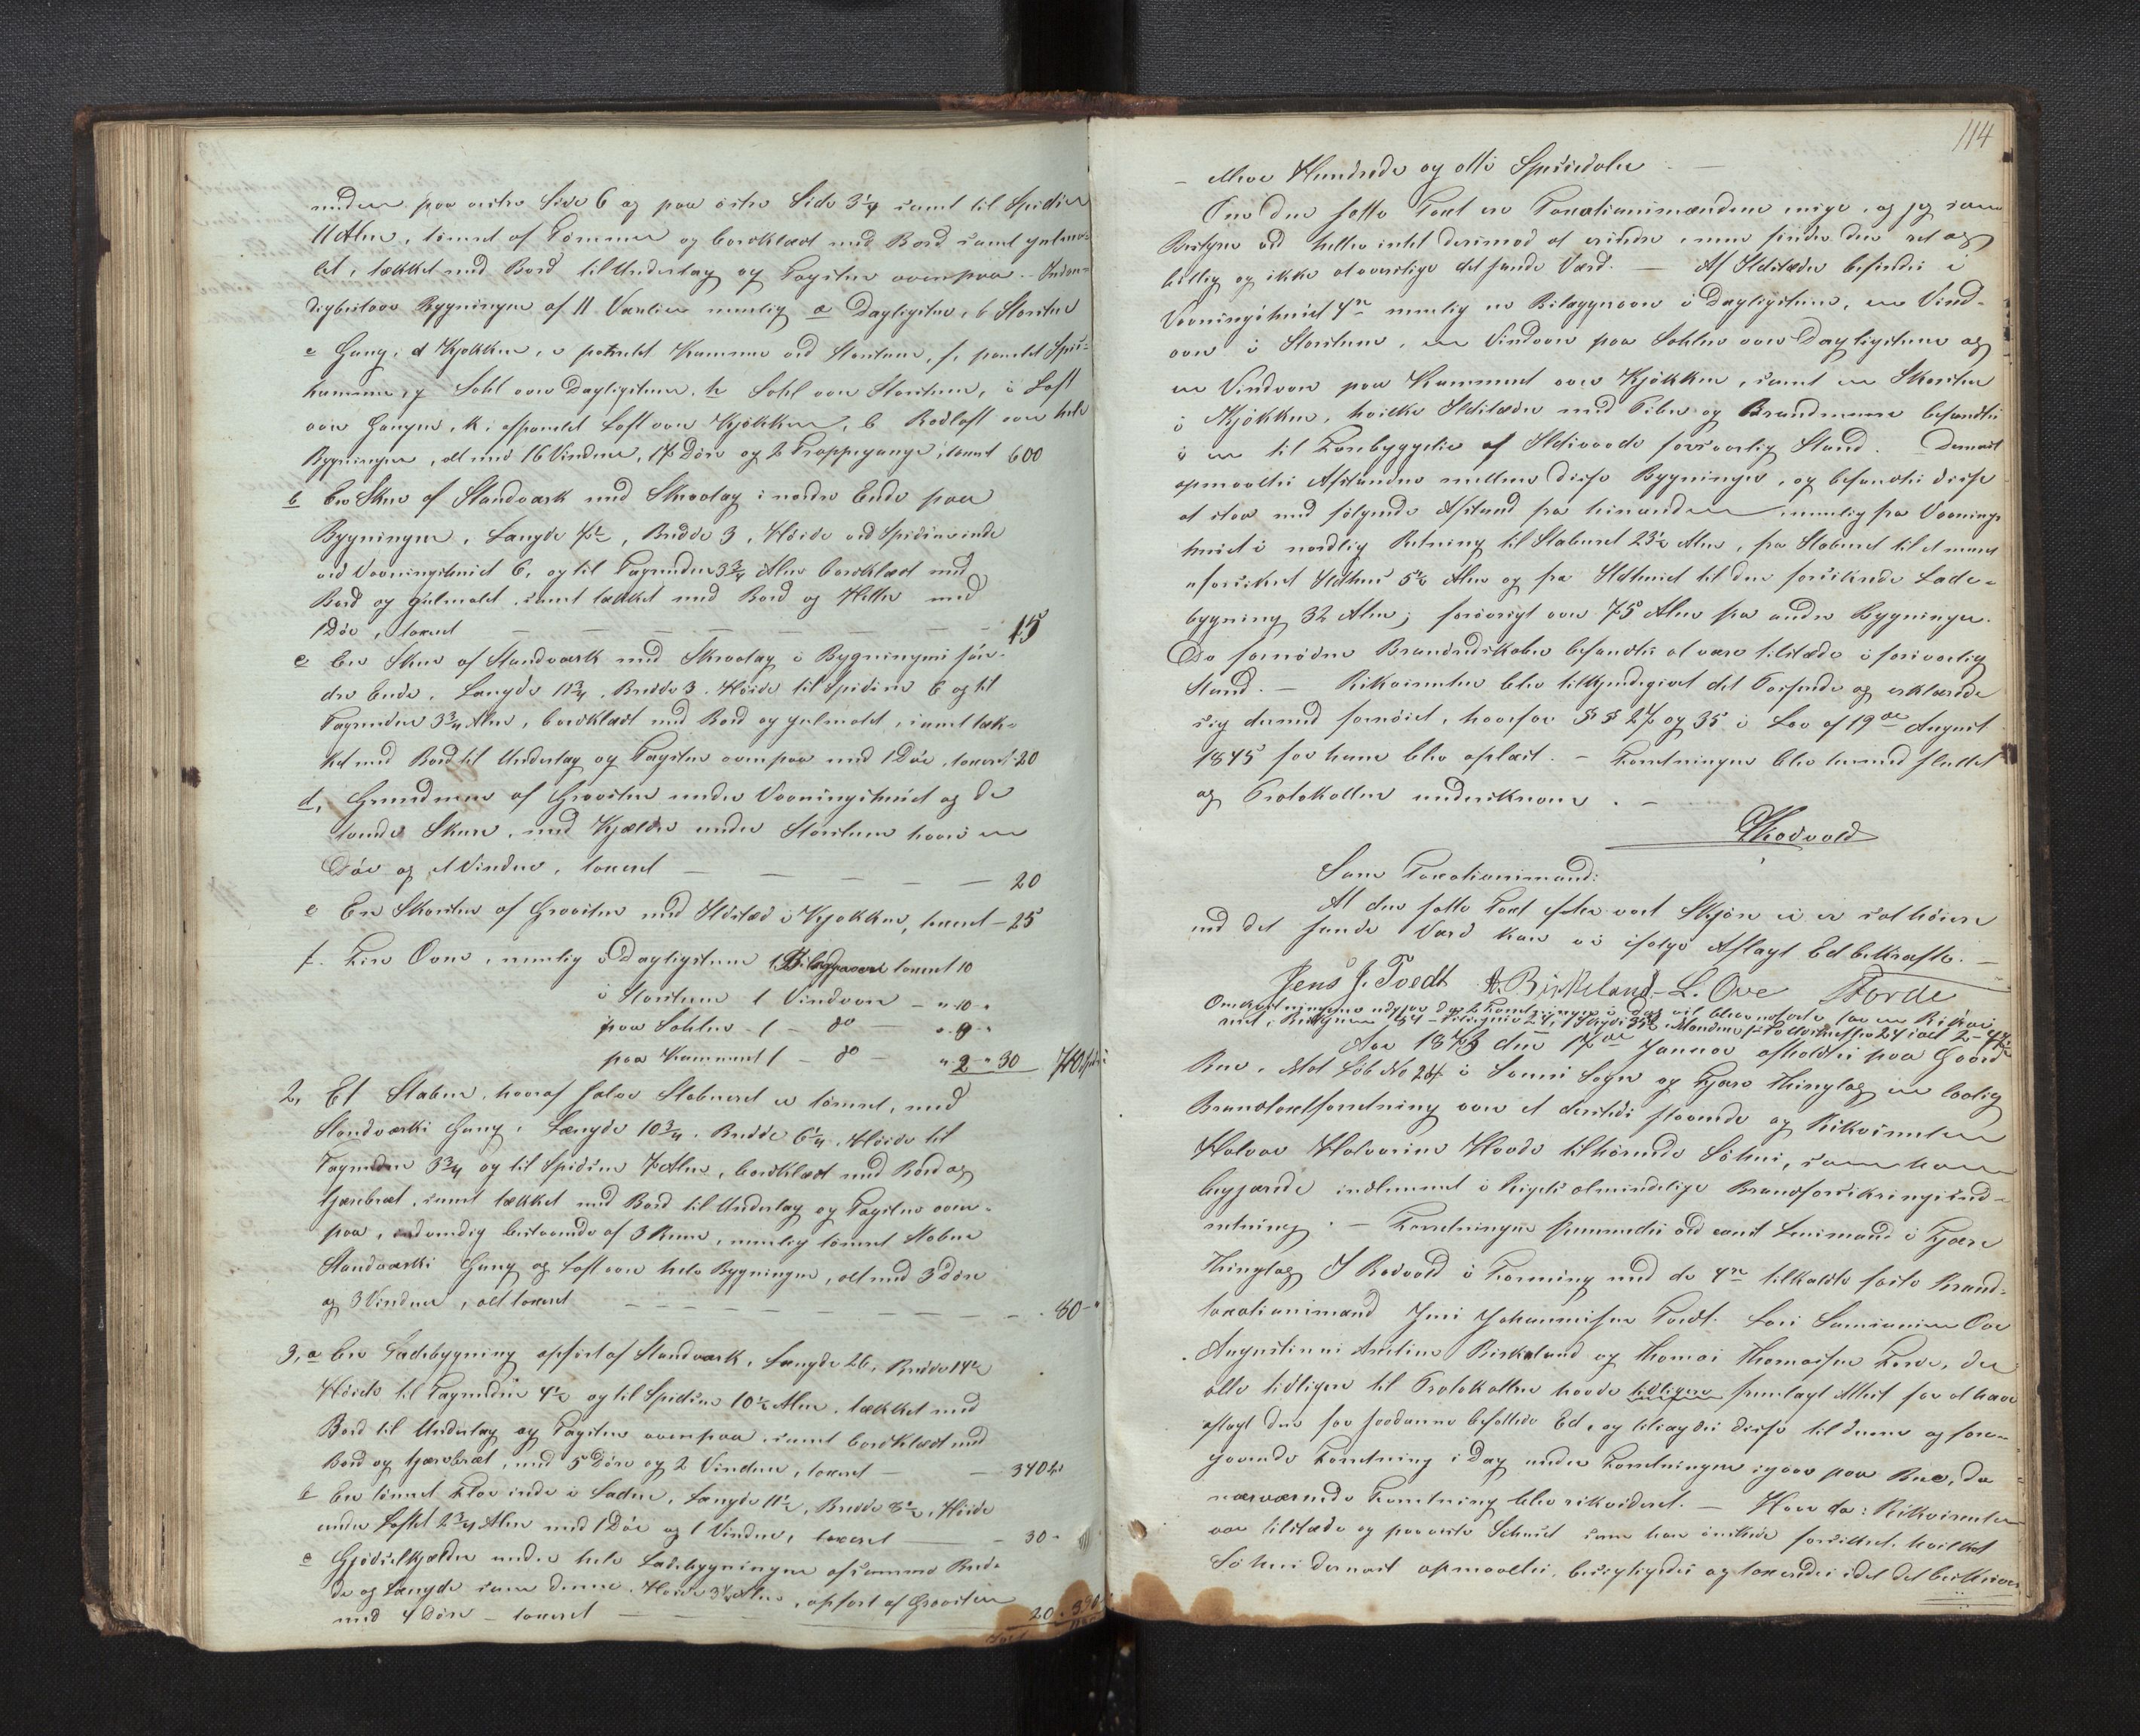 nuden paa vestre Side 6 og paa østre Side 3¼ samt til Spidsen
11 Alen, tømret af Tømmer og bordklædt med Bord samt gulma-
let, tækket med Bord til Underlag og Tagsten ovenpaa. Indven-
dig bestaar Bygningen af 11 Værelser nemlig a Dagligstue, b Storstue
c Gang, d Kjøkken, e panelet Kammer ved Storstuen, f, panelet Spise-
kammer, g Sahl over Dagligstuen, h Sahl over Storstuen, i Loft
over Gangen, k, afpanelet Loft over Kjøkken, l Rødloft over hele
Bygningen, alt med 16 Vinduer, 17 Døre og 2 Trappegange; taxeret 600
b En Skur af Standværk med Skraatag i nordre Ende paa
Bygningen, Længde 7½, Bredde 3, Høide ved Spidsen inde
ved Vaaningshuset 6, og til Tagenden 3¾ Alen bordklædt med
Bord og gulmalet, samt tækket med Bord og Heller med
1 Dør, taxeret — — — — — — 15
c En Skur af Standværk med Skraatag i Bygningens søn-
dre Ende, Længde 11¾, Bredde 3, Høide til Spidsen 6 og til
Tagenden 3¾ Alen, bordklædt med Bord og gulmalet, samt tæk-
ket med Bord til Underlag og Tagsten ovenpaa med 1 Dør, taxeret 20
d, Grundmur af Graasten under Vaaningshuset og de
tvende Skure, med Kjælder under Storstuen hvori en
Dør og et Vindue, taxeret — — — — — 20
e En Skorsten af Graasten med Ildsted i Kjøkken, taxeret — 25
f. Fire Ovne, nemlig i Dagligstuen 1 Bilæggerovn taxeret 10
i Storstuen 1 Vindovn — " 10 "
paa Sahlen 1 — do " 8 "
paa Kammeret 1 — do — " 2 " 30 710 Spd
2, Et Stabur, hvoraf selve Staburet er tømret, med
Standværks Gang, Længde 10¾, Bredde 6¼, Høide til
Tagenden 3¾ og til Spidsen 7 Alen, bordklædt med Bord og
tjærebræt, samt tækket med Bord til Underlag og Tagsten oven-
paa, indvendig bestaaende af 3 Rum, nemlig tømret Stabur
Standværks Gang og Loft over hele Bygningen, alt med 3 Døre
og 3 Vinduer, alt taxeret — — — — — — 80 "
3, a En Ladebygning opført af Standværk, Længde 26, Bredde 14½
Høide til Tagenden 4½ og til Spidsen 10½ Alen, tækket med
Bord til Underlag og Tagsten ovenpaa, samt bordklædt med
Bord og tjærebræt, med 5 Døre og 2 Vinduer, taxeret — — 340
b En tømret Flor inde i Laden, Længde 11½, Bredde 8½, Høide
under Loftet 2¾ Alen med 1 Dør og 1 Vindue, taxeret — — 30 "
c Gjødselkjælder under hele Ladebygningen af samme Bred-
de og Længde som denne, Høide 3¼ Alen, opført af Graasten
med 4 Døre — taxeret — — 20. 390
114
— Elleve Hundrede og otte Speciedaler —
Om den satte Taxt er Taxationsmændene enige, og jeg som
Bestyrer ved heller intet derimod at erindre, men finder den ret og
billig og ikke at overstige det sande Værd. — Af Ildsteder befindes i
Vaaningshuset 4re nemlig en Bilæggerovn i Dagligstuen, en Vind-
ovn i Storstuen, en Vindovn paa Sahlen over Dagligstuen og
en Vindovn paa Kammeret over Kjøkken, samt en Skorsten
i Kjøkken, hvilke Ildsteder med Piber og Brandmure befandtes
i en til Forebyggelse af Ildsvaade forsvarlig Stand. Dernæst
opmaaltes Afstanden mellem disse Bygninger, og befandtes disse
at staa med følgende Afstand fra hinanden, nemlig fra Vaanings-
huset i nordlig Retning til Staburet 23½ Alen, fra Staburet til et mure
uforsikret Ildhus 5½ Alen og fra Ildhuset til den forsikrede Lade-
bygning 32 Alen; forøvrigt over 75 Alen fra andre Bygninger.
De fornødne Brandredskaber befandtes at være tilstede i forsvarlig
Stand. — Rekvirenten blev tilkjendegivet det Passerede og erklærede
sig dermed fornøiet, hvorfor §§ 27 og 35 i Lov af 19de August
1845 for ham blev oplæst. — Forretningen blev hermed sluttet
og Protokollen underskreven. —
Rødvold
Som Taxationsmænd:
At den satte Taxt efter vort Skjøn ei er sat høiere
end det sande Værd kan vi ifølge Aflagt Ed bekræfte. —
Jens J. Tvedt A. Birkeland L. Ove T Førde
Omkostningerne udgjør
Aar 1873 den 17de Januar afholdtes paa Gaard
Bue, Mat Løb No 24 i Sunds Sogn og Fjære Thinglag en lovlig
Brandtaxtforretning over et dersteds staaende og Rekvirenten
Halvor Halvorsen Hovde tilhørende Søhus, som han
begjærede indlemmet i Rigets almindelige Brandforsikringsind-
retning. — Forretningen fremmedes ved const Lensmand i Fjære
Thinglag J Rødvold i Forening med de 4re tilkaldte faste Brand-
taxationsmænd Jens Johannessen Tvedt. Lars Larsen Ove
Augustinus Birkeland og Thomas Thomassen Førde, der
alle tidligere til Protokollen havde tidligere fremlagt Attest for at have
aflagt den for saadanne befalede Ed, og tilsagdes disse til denne og fore-
gaaende Forretning i Dag under Forretningen igaar paa Bue, da
nærværende Forretning blev rekvireret. — Hvor da: Rekvirenten
var tilstede og paaviste Søhuset som han ønskede forsikret, hvilket
Søhus dernæst opmaaltes, besigtigedes og taxeredes idet det beskrives